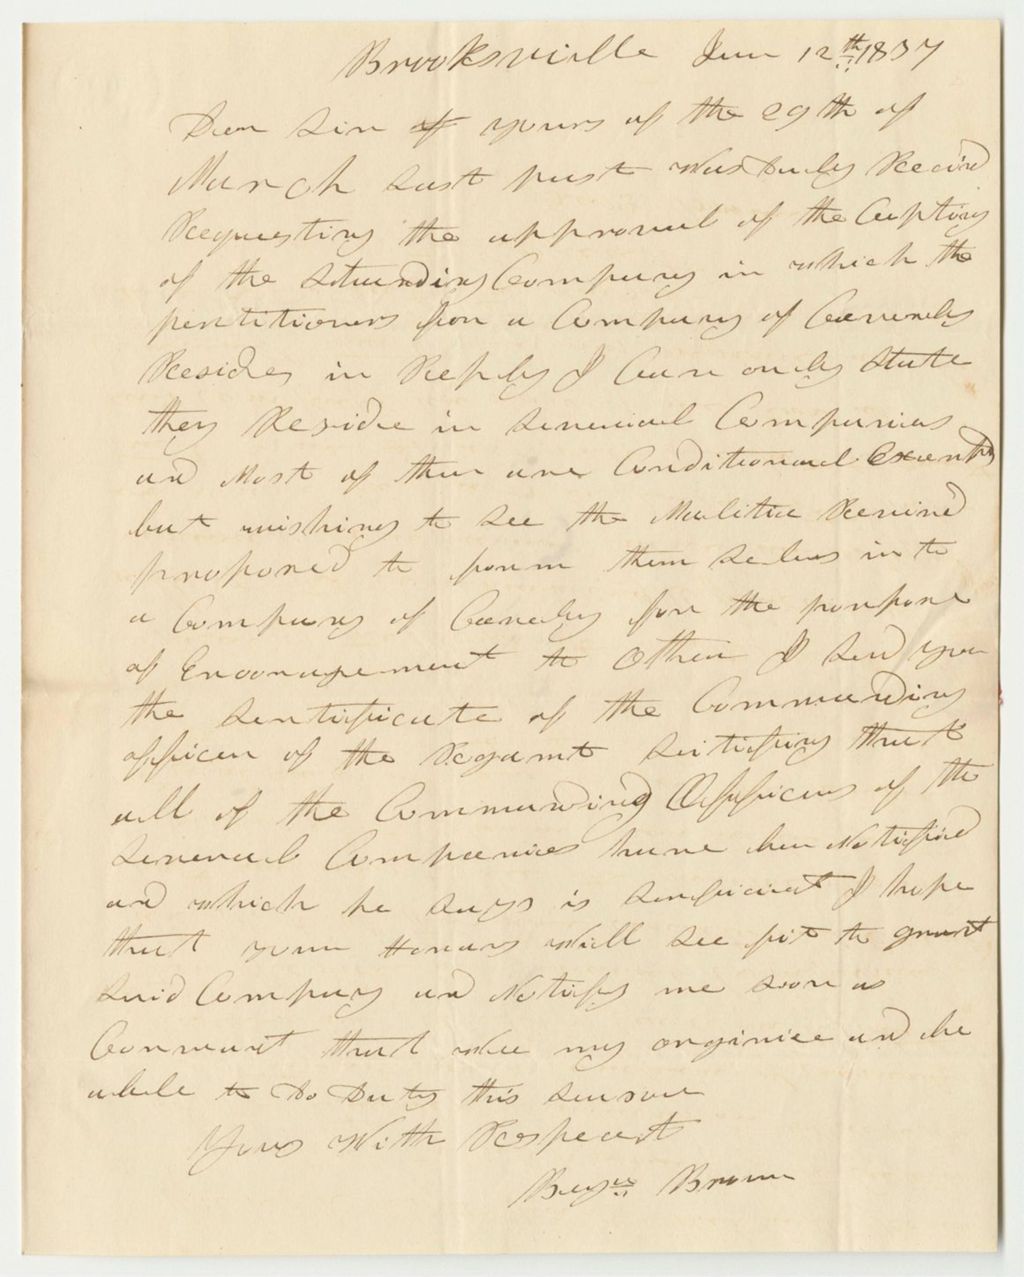 Brooksville Jun 12th 1837
Dear Sir yours of the 29th of
March Last past was Duly Receivd
Requesting the approval of the Capting
of the Standing Company in which the
pentitioners for a Company of Cavendy
Resides in Reply I Can only State
they Reside in Several Companies
and Most of them are Conditional Exempts
but wishing to see the Malitia Revived
proposed to form them selves in to
a Company of Cavendy for the porpose
of Encoragement to Other I Send you
the Sertificate of the Commanding
officer of the Regamt Sirtifying that
all of the Commanding Officers of the
Several Companies have ben Notified
and which he Says is Sufficient I hope
that your Honors Will See fit to grant
Said Company and Notify me soon as
Convenant that we may orginise and be
able to Do Duty this Season
Yours With Respect
Benjn Brown